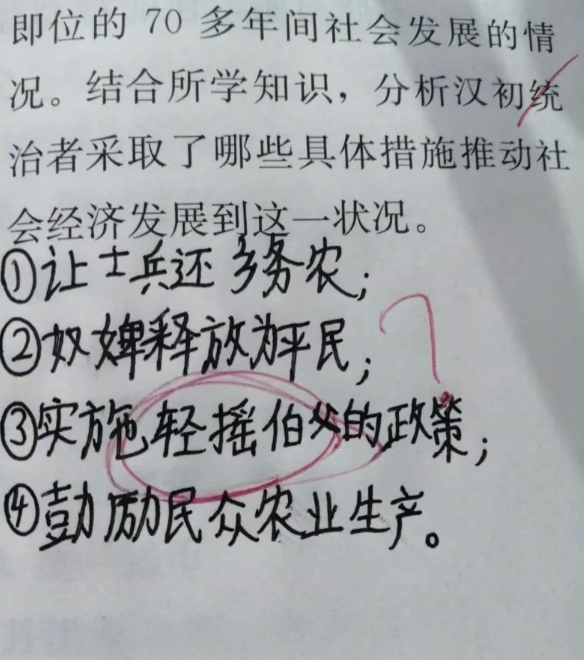 即位的 70 多年间社会发展的情
况。结合所学知识，分析汉初统
治者采取了哪些具体措施推动社
会经济发展到这一状况。
①让士兵还乡务农；
②奴婢释放为平民；
③实施轻摇伯父的政策；
④鼓励民众农业生产。
？